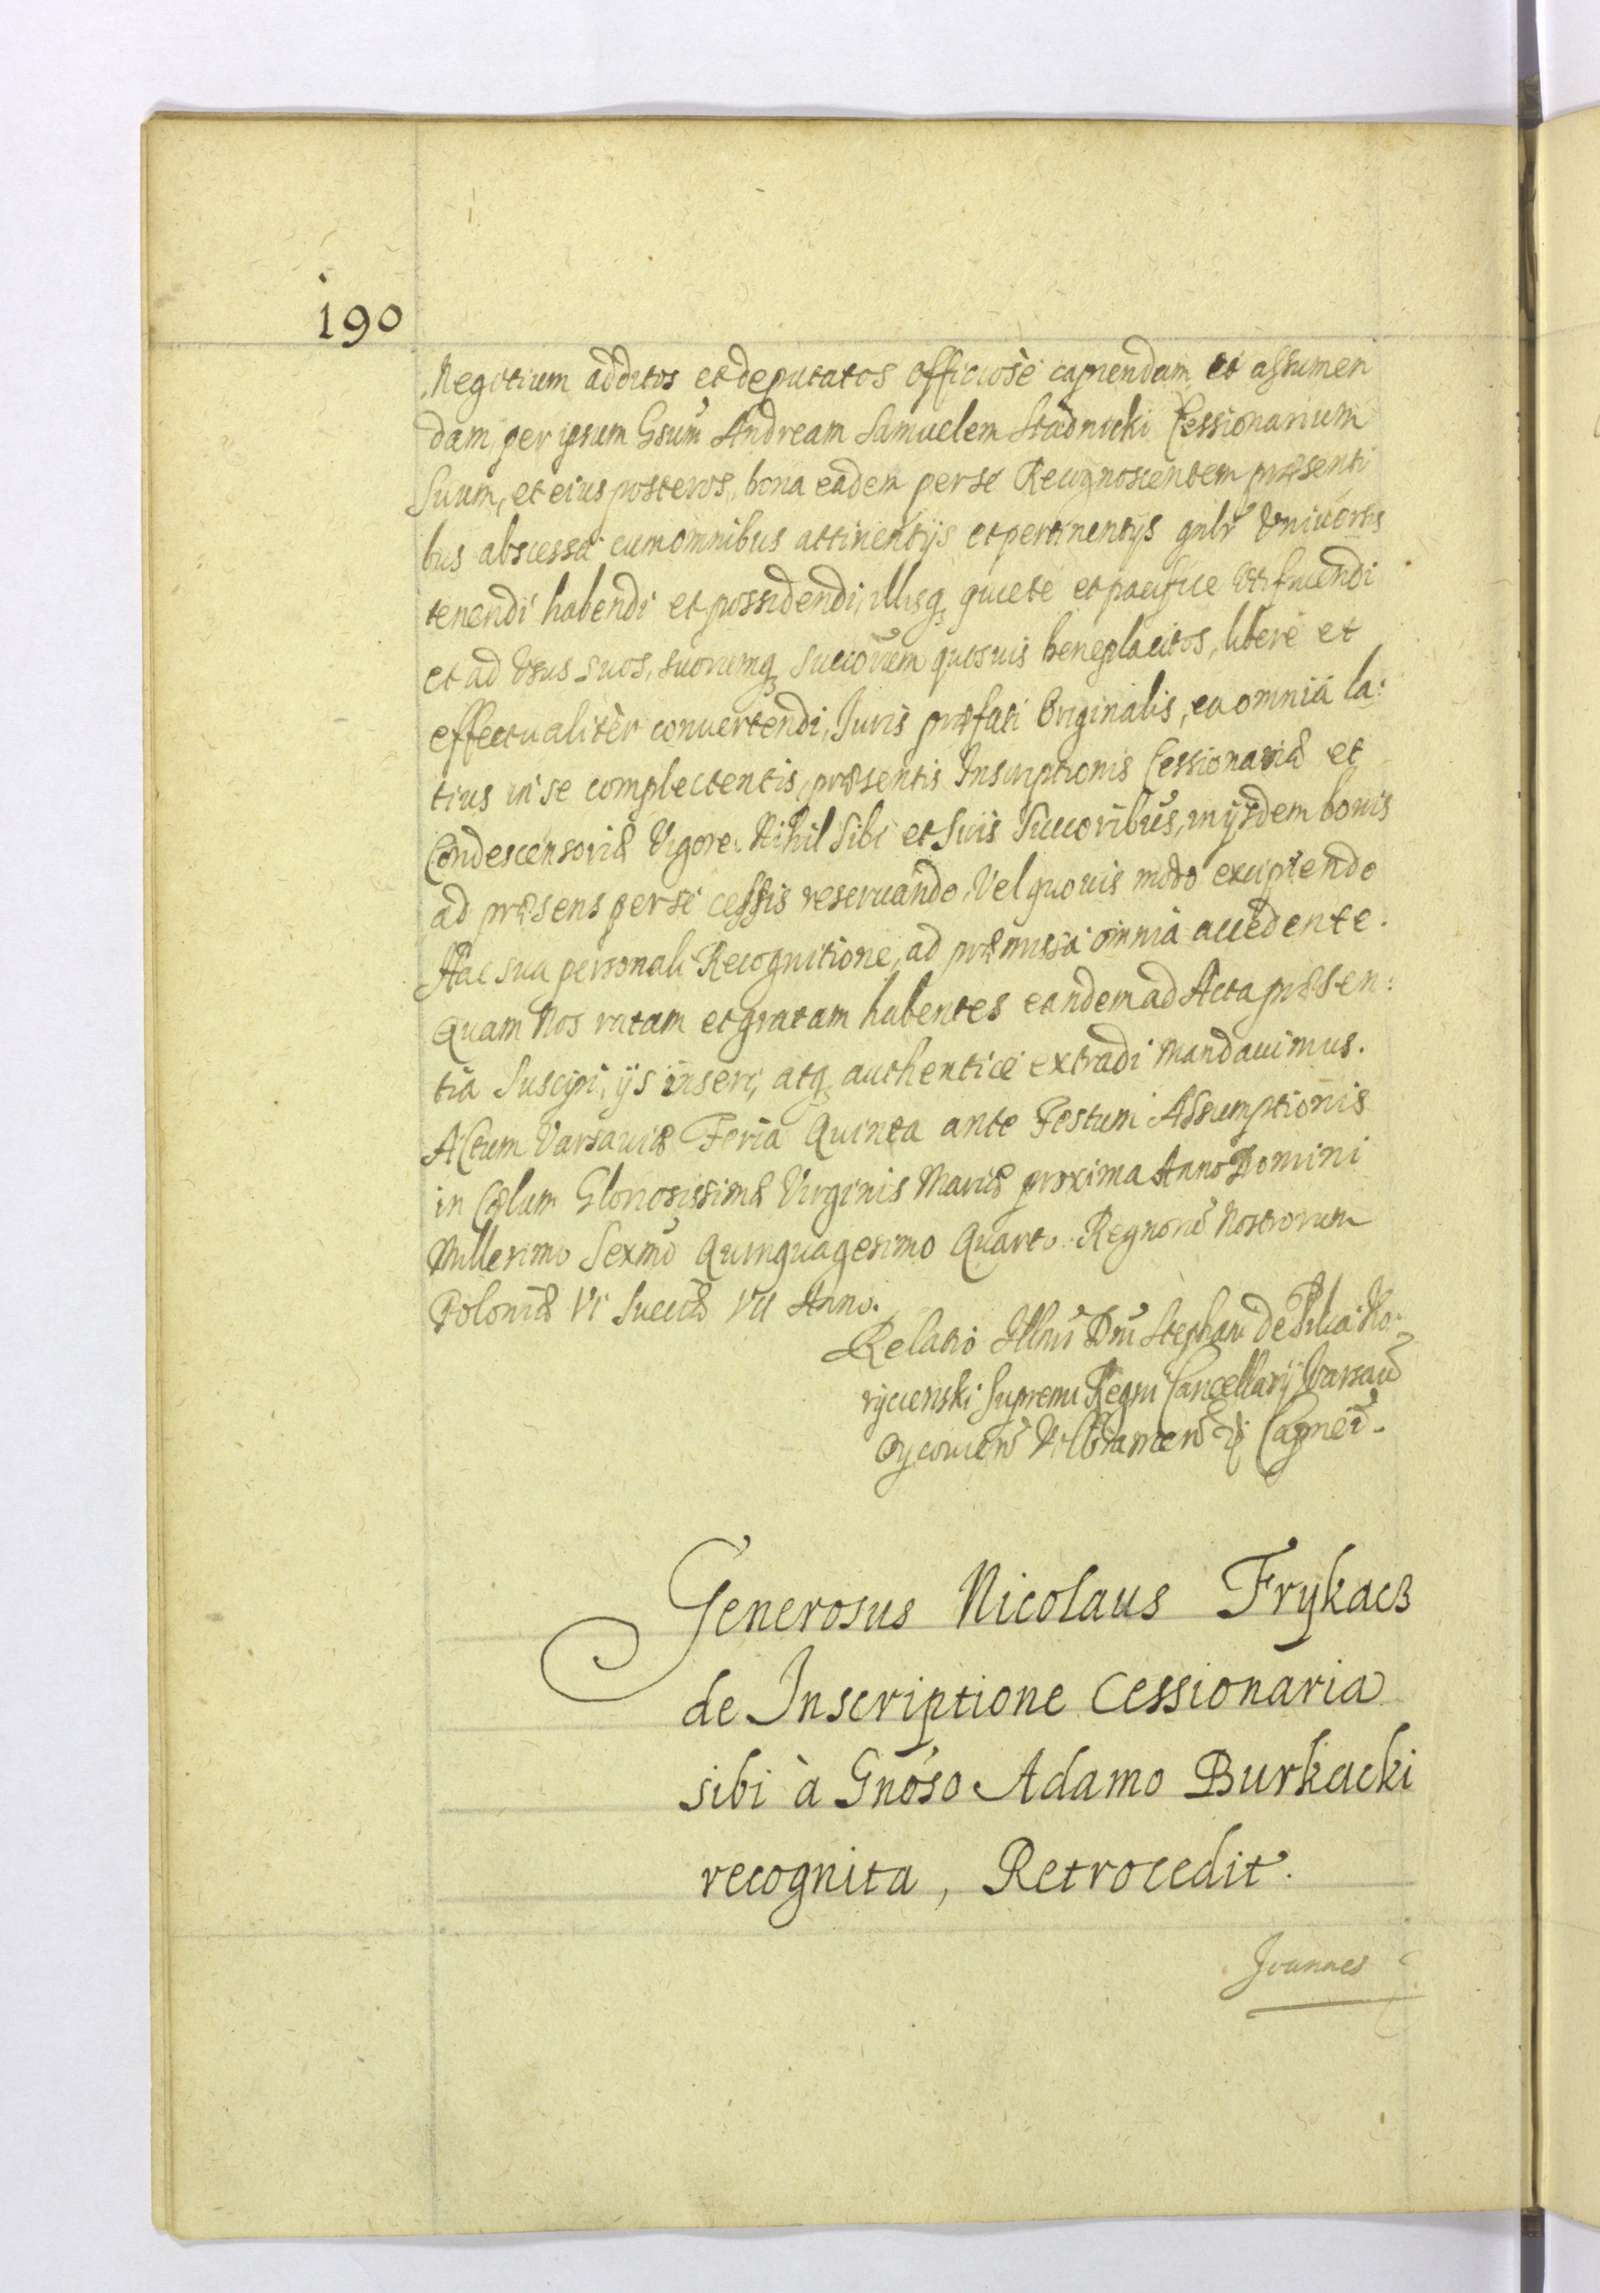 190
Negotium additos et deputatos officiosè capiendam et assumen
dam per ipsum Gsum Andream Samuelem Stadnicki Cessionarium
Suum, et eius posteros, bona eadem per se Recognoscentem præsenti
bus abscessa cum omnibus attinentijs et pertinentijs gnlr Vniuersis
tenendi habendi et possidendi, illisq quiete et pacifice Vtifruendi
et ad Vsus suos, suorumq Succorum quosuis beneplacitos, liberè et
effectualitèr conuertendi, Juris præfati Originalis, ea omnia la:
tius in se complectentis, præsentis Inscriptionis Cessionariæ et
Condescensoriæ Vigore. Nihil Sibi et Suis Succoribus, in ijsdem bonis
ad præsens per se cessis reseruando, Vel quouis modo excipiendo
Hac sua personali Recognitione, ad præmissa omnia accedente.
Quam Nos ratam et gratam habentes eandem ad Acta præsen:
tia Suscipi, ijs inseri, atq authentice extradi mandauimus.
Actum Varsauiæ Feria Quinta ante Festum Assumptionis
in Cælum Gloriosissimæ Virginis Mariæ proxima Anno Domini
Millesimo Sexmo Quinquagesimo Quarto. Regnoru Nostrorum
Poloniæ VI Sueciæ VII Anno.
Relatio Illmi Dni Stephani de Pilca Ko:
rycienski Supremi Regni Cancellarij Varsau
Oycouien Wolbramen
Generosus Nicolaus Frykacz
de Inscriptione Cessionaria
sibi à Gnoso Adamo Burkacki
recognita, Retrocedit.
Joannes